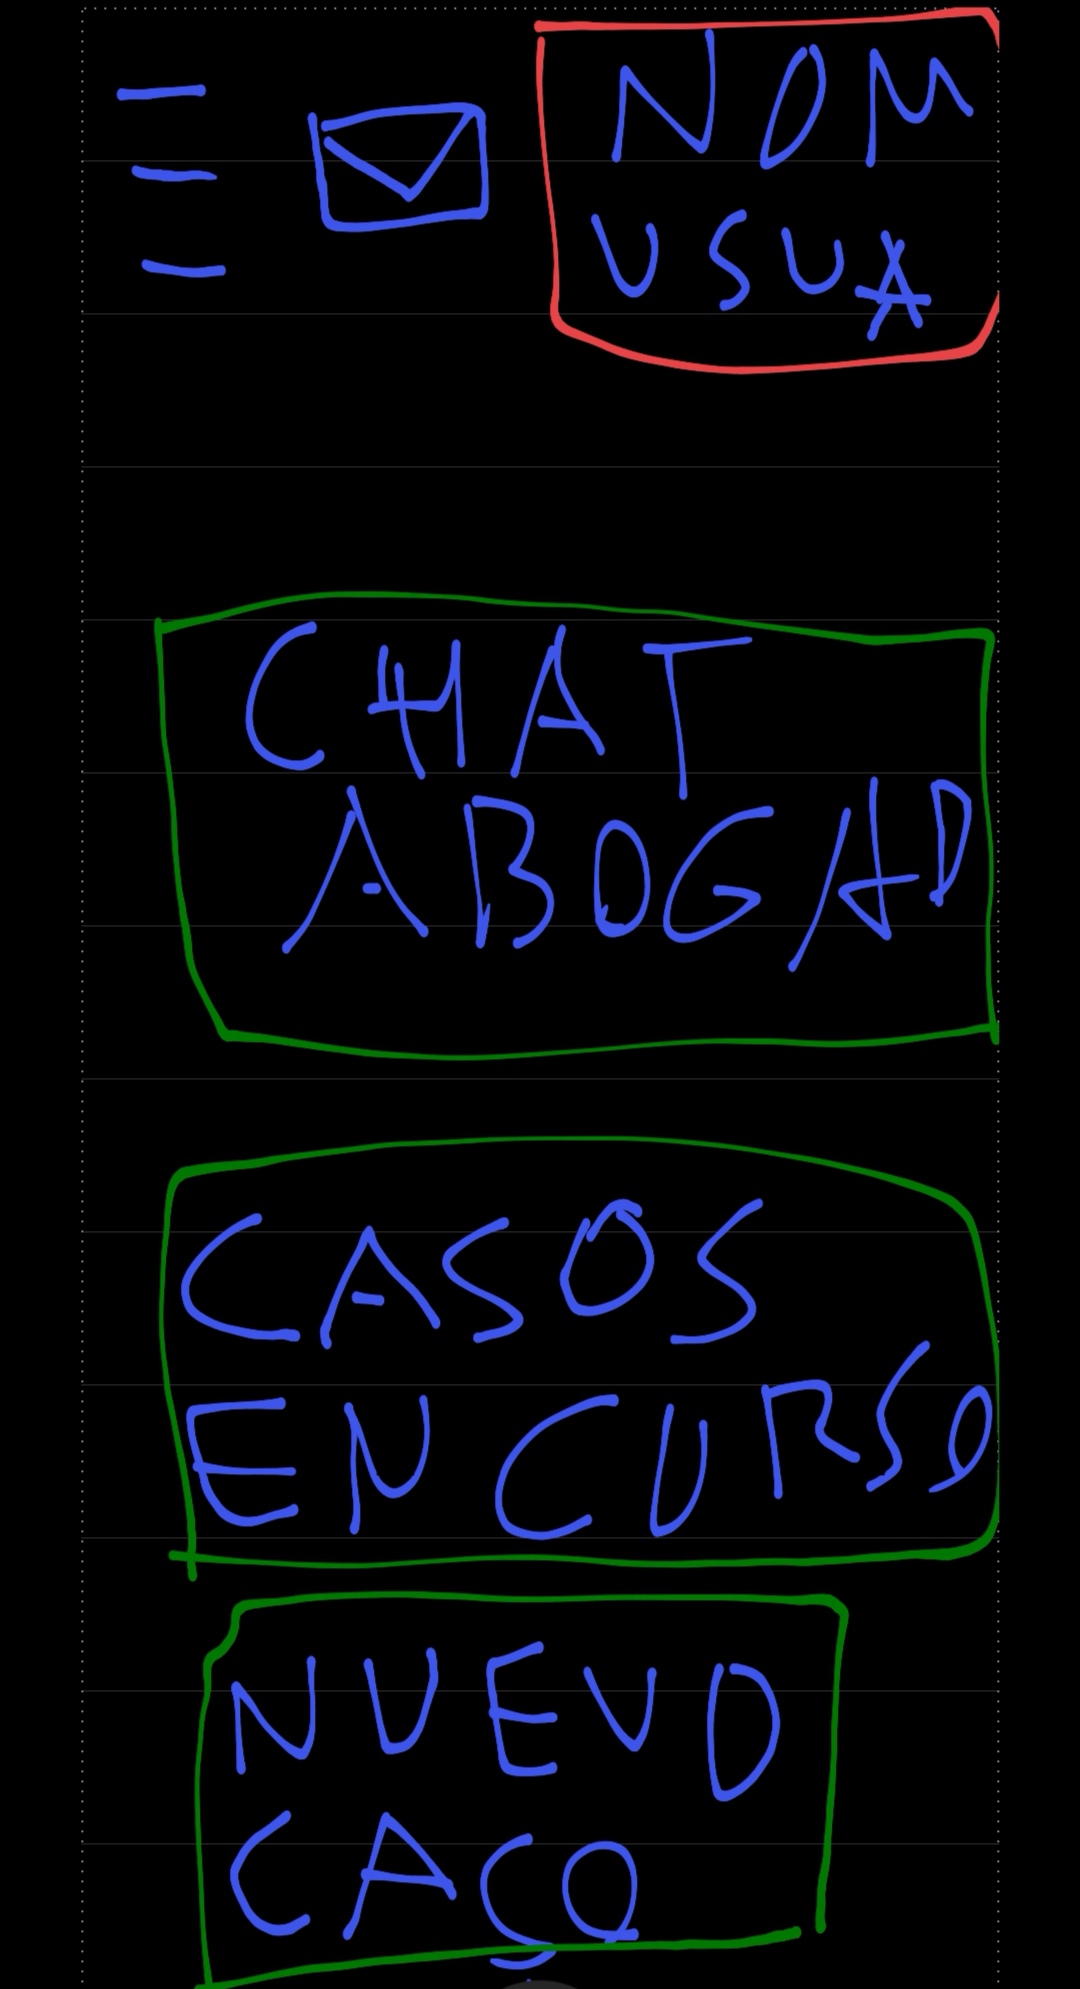 NOM
USUA
CHAT
ABOGAD
CASOS
EN CURSO
NUEVO
CASO